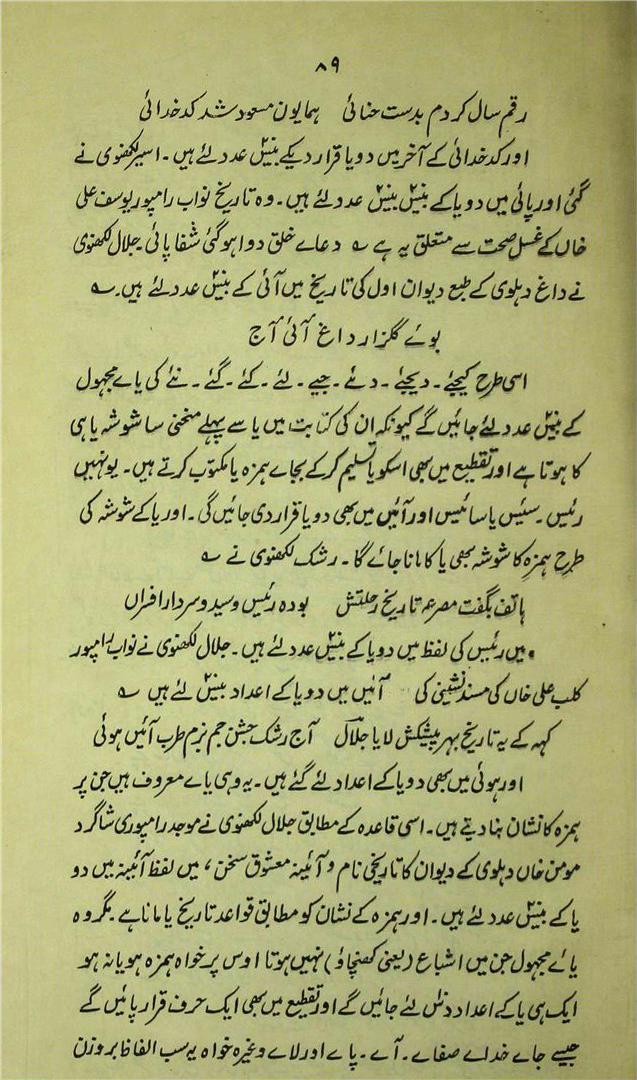 ۸۹
رقم سال کردم بدست حنائی ہمایون مسعود شد کدخدائی
اور کدخدائی کے آخر میں دو یا قرار دیکے بنیس عدد لئے ہیں۔ اسیر لکھنوی نے
گئی اور پائی میں دو یا کے بنیس بنیس عدد لئے ہیں۔ وہ تاریخ نواب رامپور یوسف علی
خاں کے غسل صحت سے متعلق یہ ہے ؎ دعاے خلق دوا ہو گئی شفا پائی جلال لکھنوی
نے داغ دہلوی کے طبع دیوان اول کی تاریخ میں آئی کے بنیس عدد لئے ہیں۔ ؎
بوئے گلزار داغ آئی آج
اسی طرح کیجئے۔ دیجئے۔ دئے۔ جیے۔ لئے۔ کئے۔ گئے۔ نئے کی یاے مجہول
کے بنیس عدد لئے جائیں گے کیونکہ ان کی کتابت میں یا سے پہلے منحنی سا شوشہ یا ہی
کا ہوتا ہے اور تقطیع میں بھی اسکو یا تسلیم کر کے بجاے ہمزہ یا مکتوب کرتے ہیں۔ یونہیں
رئیس۔ سئیس یا سائیس اور آئیں میں بھی دو یا قرار دی جائیں گی۔ اور یا کے شوشہ کی
طرح ہمزہ کا شوشہ بھی یا کا مانا جائے گا۔ رشک لکھنوی نے ؎
ہاتف بگفت مصرعہ تاریخ رحلتش بودہ رئیس وسید وسردار افراں
میں رئیس کی لفظ میں دو یا کے بنیس عدد لئے ہیں۔ جلال لکھنوی نے نواب رامپور
کلب علی خاں کی مسند نشینی کی آئیں میں دو یا کے اعداد بنیس لئے ہیں ؎
کہہ کے یہ تاریخ بہر پیشکش لایا جلال آج رشک جشن جم بزم طرب آئیں ہوئی
اور ہوئی میں بھی دو یا کے اعداد لئے گئے ہیں۔ یہ وہی یاے معروف ہیں جن پر
ہمزہ کا نشان بنا دیتے ہیں۔ اسی قاعدہ کے مطابق جلال لکھنوی نے موجد رامپوری شاگرد
مومن خاں دہلوی کے دیوان کا تاریخی نام ’آئینہ معشوق سخن‘ میں لفظ آئینہ میں دو
یا کے بنیس عدد لئے ہیں۔ اور ہمزہ کے نشان کو مطابق قواعد تاریخ یا مانا ہے۔ مگر وہ
یائے مجہول جن میں اشباع (یعنی کھنچاؤ) نہیں ہوتا اوس پر خواہ ہمزہ ہو یا نہ ہو
ایک ہی یا کے اعداد دنس لئے جائیں گے اور تقطیع میں بھی ایک حرف قرار پائیں گے
جیسے جاے خداے صفاے۔ آے۔ پاے اور لاے وغیرہ خواہ یہ سب الفاظ بروزن